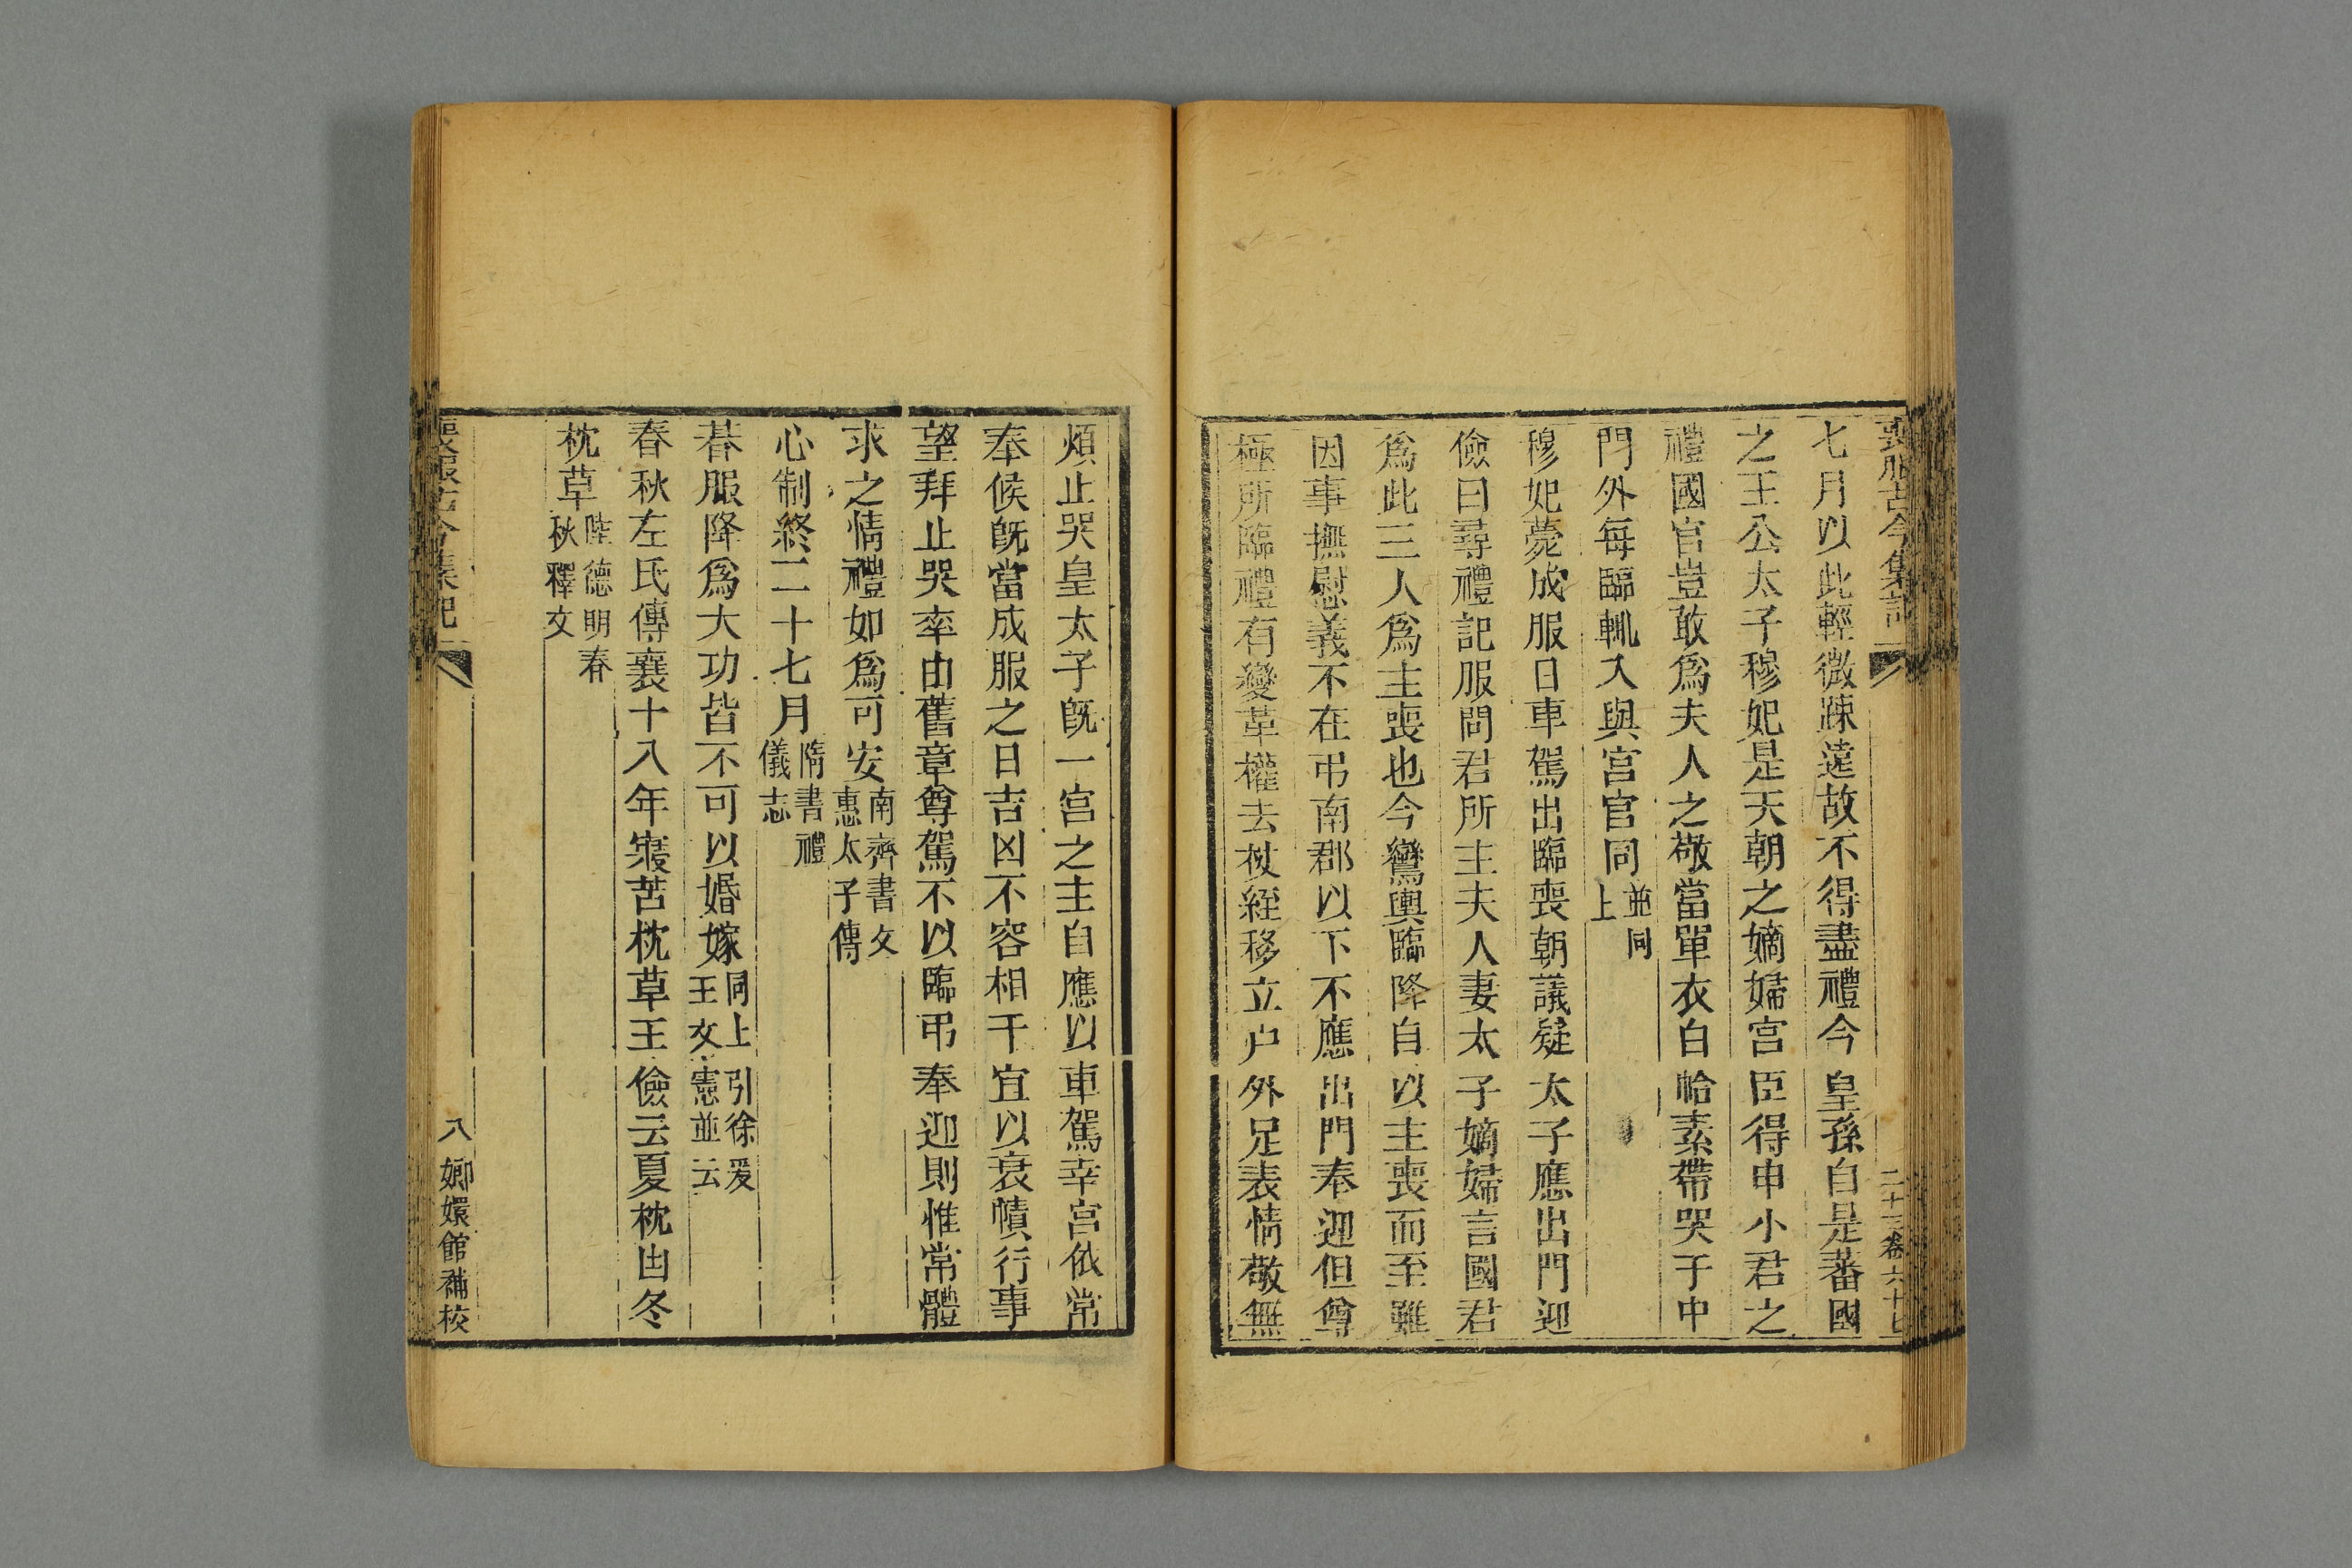 喪服古今集記
二十三卷六十七
七月以此輕微疎遠故不得盡禮今皇孫自是蕃國
之王公太子穆妃是天朝之嫡婦宫臣得申小君之
禮國官豈敢爲夫人之敬當單衣白帢素帶哭于中
門外每臨輒入與宫官同並同上
穆妃薨成服日車駕出臨喪朝議疑太子應出門迎
儉曰尋禮記服問君所主夫人妻太子嫡婦言國君
爲此三人爲主喪也今鸞輿臨降自以主喪而至雖
因事撫慰義不在弔南郡以下不應出門奉迎但尊
極所臨禮有變革權去杖絰移立户外足表情敬無
煩止哭皇太子旣一宫之主自應以車駕幸宫依常
奉候旣當成服之日吉凶不容相干宜以衰幘行事
望拜止哭率由舊章尊駕不以臨弔奉迎則惟常體
求之情禮如爲可安南齊書文惠太子傳
心制終二十七月隋書禮儀志
朞服降爲大功皆不可以婚嫁同上引徐爰王文憲並云
春秋左氏傳襄十八年寢苫枕草王儉云夏枕凷冬
枕草陸德明春秋釋文
喪服古今集記
八
嫏嬛館補校